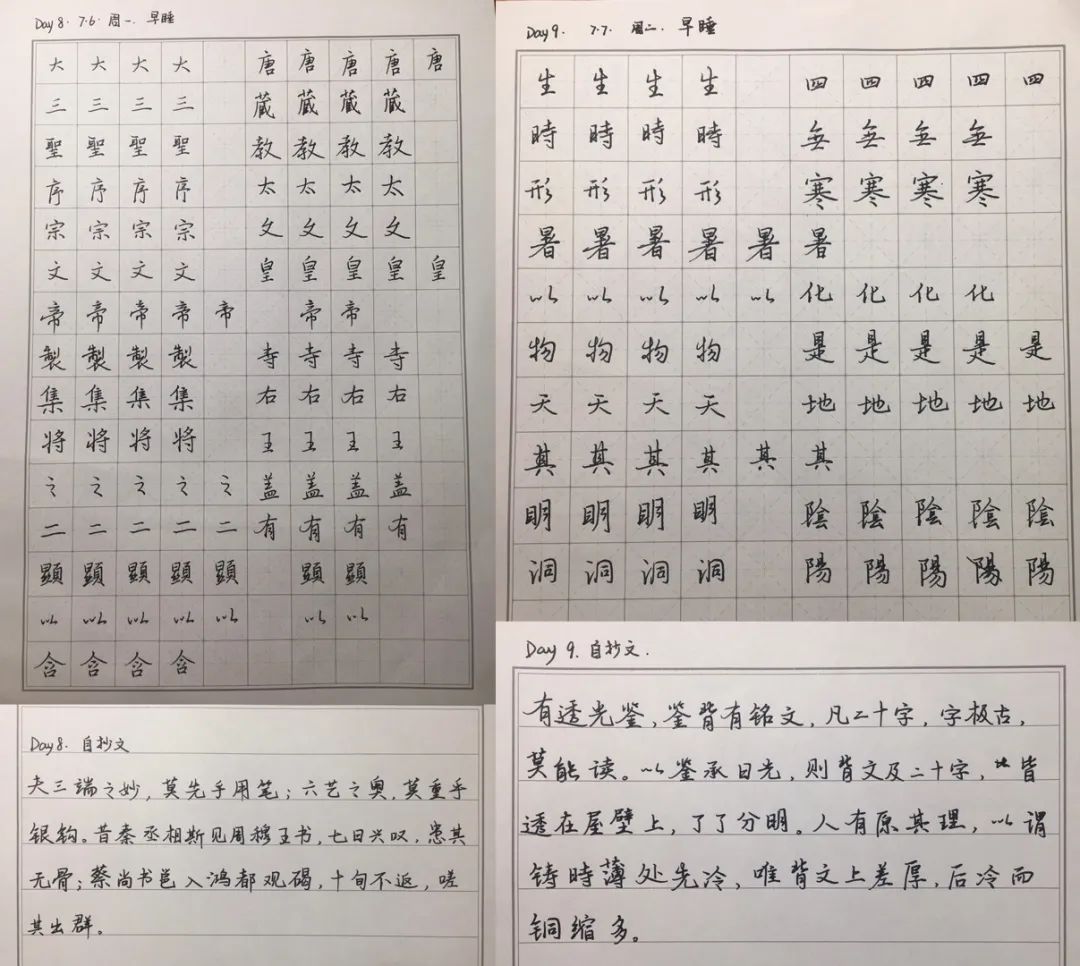 Day 8. 7.6. 周一. 早睡
大 大 大 大 唐 唐 唐 唐 唐
三 三 三 三 蔵 蔵 蔵 蔵
聖 聖 聖 聖 教 教 教 教
序 序 序 序 太 太 太 太
宗 宗 宗 宗 文 文 文 文
文 文 文 文 皇 皇 皇 皇 皇
帝 帝 帝 帝 帝 帝 帝
製 製 製 製 寺 寺 寺 寺
集 集 集 集 右 右 右 右
将 将 将 将 王 王 王 王
之 之 之 之 之 盖 盖 盖 盖
二 二 二 二 二 有 有 有 有
顕 顕 顕 顕 顕 顕 顕
以 以 以 以 以 以 以
含 含 含 含
Day 8. 自抄文
夫三端之妙，莫先乎用笔；六艺之奥，莫重乎
银钩。昔秦丞相斯见周穆王书，七日兴叹，患其
无骨；蔡尚书邕入鸿都观碣，十旬不返，嗟
其出群。
Day 9. 7.7. 周二. 早睡
生 生 生 生 四 四 四 四 四
時 時 時 時 無 無 無 無
形 形 形 形 寒 寒 寒 寒
暑 暑 暑 暑 暑 暑
以 以 以 以 以 化 化 化 化
物 物 物 物 是 是 是 是 是
天 天 天 天 地 地 地 地 地
其 其 其 其 其 其
明 明 明 明 陰 陰 陰 陰 陰
洞 洞 洞 洞 陽 陽 陽 陽 陽
Day 9. 自抄文.
有透光鉴，鉴背有铭文，凡二十字，字极古，
莫能读。以鉴承日光，则背文及二十字，皆
透在屋壁上，了了分明。人有原其理，以谓
铸時薄处先冷，唯背文上差厚，后冷而
铜缩多。